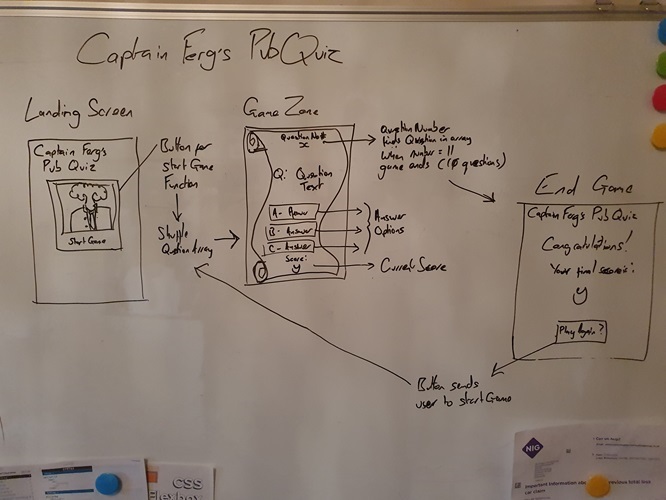 Captain Ferg's Pub Quiz
Landing Screen
Captain Ferg's
Pub Quiz
Start Game
Button for
start Game
Function
Shuffle
Question Array
Game Zone
Question No#
x
Q: Question
Text
A - Answer
B - Answer
C - Answer
Score:
y
Question Number
finds Question in array
When number = 11
game ends (10 questions)
Answer
Options
Current Score
End Game
Captain Ferg's Pub Quiz
Congratulations!
Your final score is:
y
Play Again?
Button sends
user to start Game
CSS
NIG
Important information